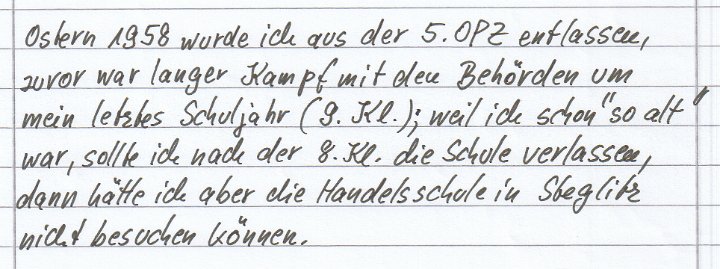 Ostern 1958 wurde ich aus der 5. OPZ entlassen,
zuvor war langer Kampf mit den Behörden um
mein letztes Schuljahr (9. Kl.); weil ich schon "so alt"
war, sollte ich nach der 8. Kl. die Schule verlassen,
dann hätte ich aber die Handelsschule in Steglitz
nicht besuchen können.